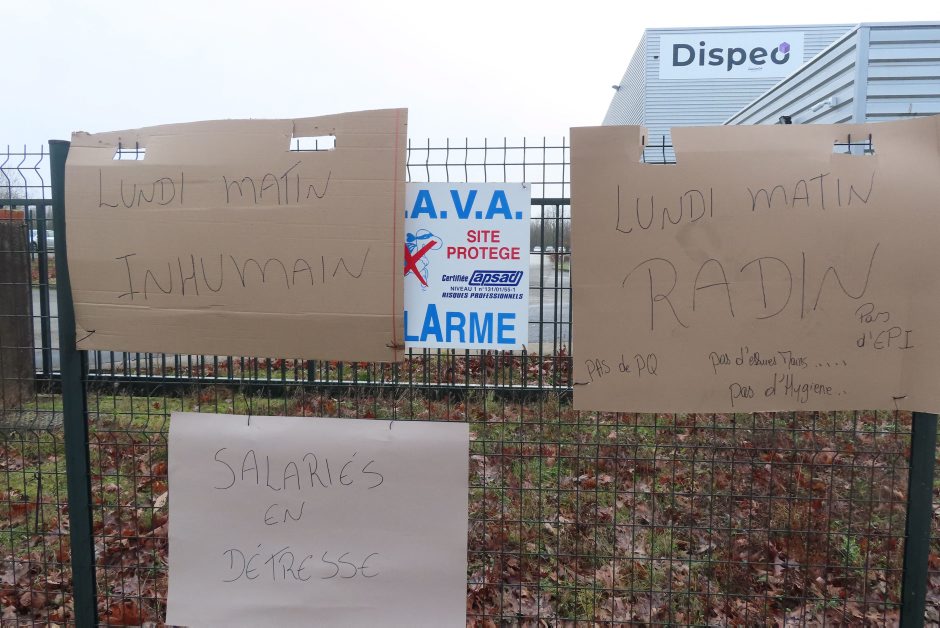 Dispeo
LUNDI MATIN
INHUMAIN
.A.V.A.
SITE
PROTEGE
Certifiée apsad
NIVEAU 1 n°131/01/55-1
RISQUES PROFESSIONNELS
LARME
LUNDI MATIN
RADIN
Pas
d'EPI
PAS de PQ
pas d'essuies Mains.....
pas d'Hygiène..
SALARIÉS
EN
DÉTRESSE